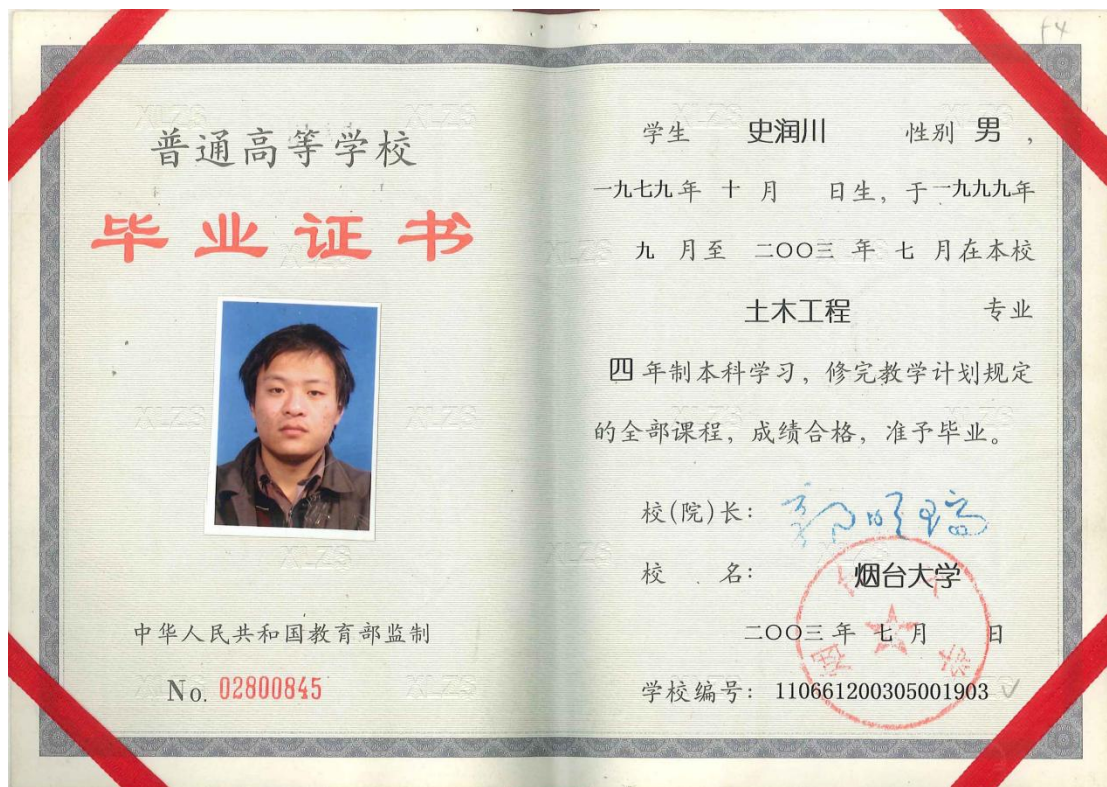 普通高等学校
毕业证书
中华人民共和国教育部监制
No. 02800845
学生 史润川 性别 男，
一九七九年 十 月 日生，于一九九九年
九 月至 二〇〇三 年 七 月在本校
土木工程 专业
四 年制本科学习，修完教学计划规定
的全部课程，成绩合格，准予毕业。
校(院)长：
校 名： 烟台大学
二〇〇三 年 七 月 日
学校编号： 110661200305001903
烟台大学
XLZS